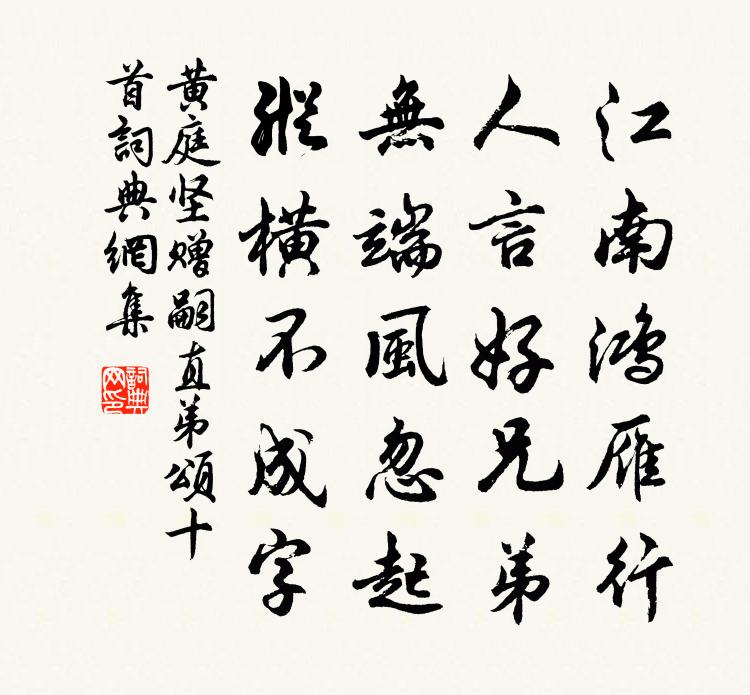 江南鴻雁行
人言好兄弟
無端風忽起
縱橫不成字
黄庭坚赠嗣直弟頌十
首詞典網集
詞典网印